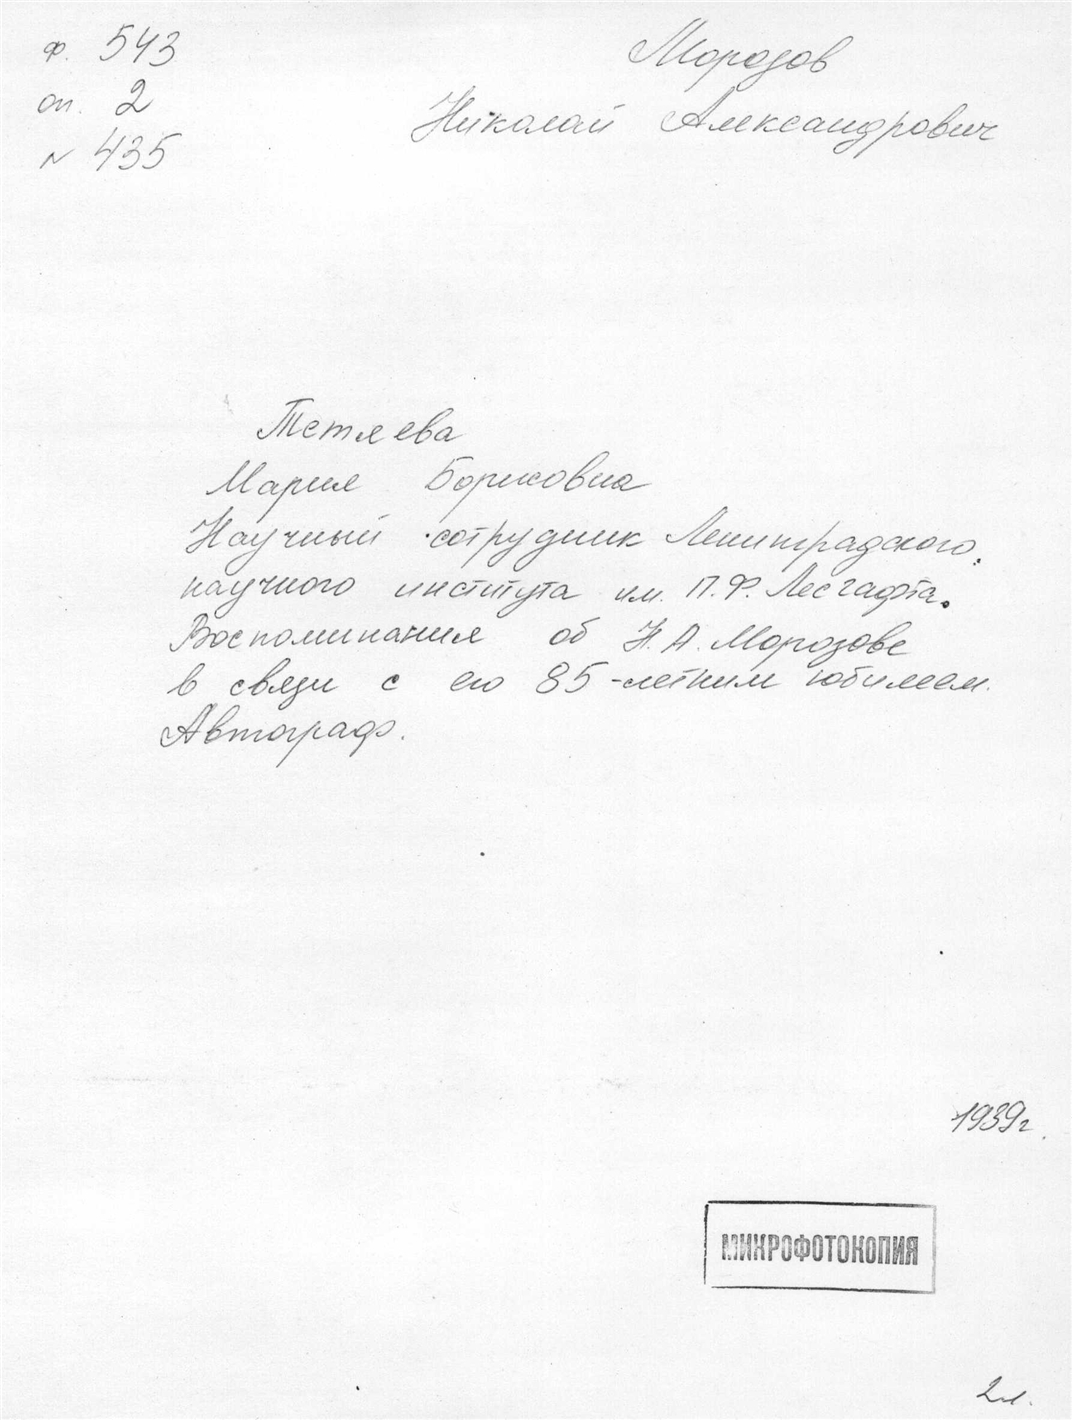 ф. 543
оп. 2
N 435
Морозов
Николай Александрович
Тетяева
Мария Борисовна
Научный сотрудник Ленинградского
научного института им. П.Ф. Лесгафта.
Воспоминания об Н.А. Морозове
в связи с его 85-летним юбилеем.
Автограф.
1939г.
МИКРОФОТОКОПИЯ
2л.